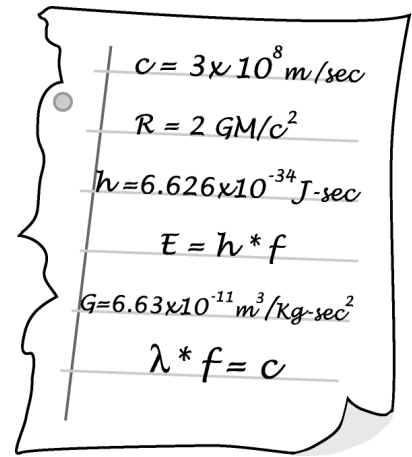 c = 3x10⁸ m/sec
R = 2 GM/c²
h=6.626x10⁻³⁴J-sec
E = h * f
G=6.63x10⁻¹¹m³/Kg-sec²
λ * f = c